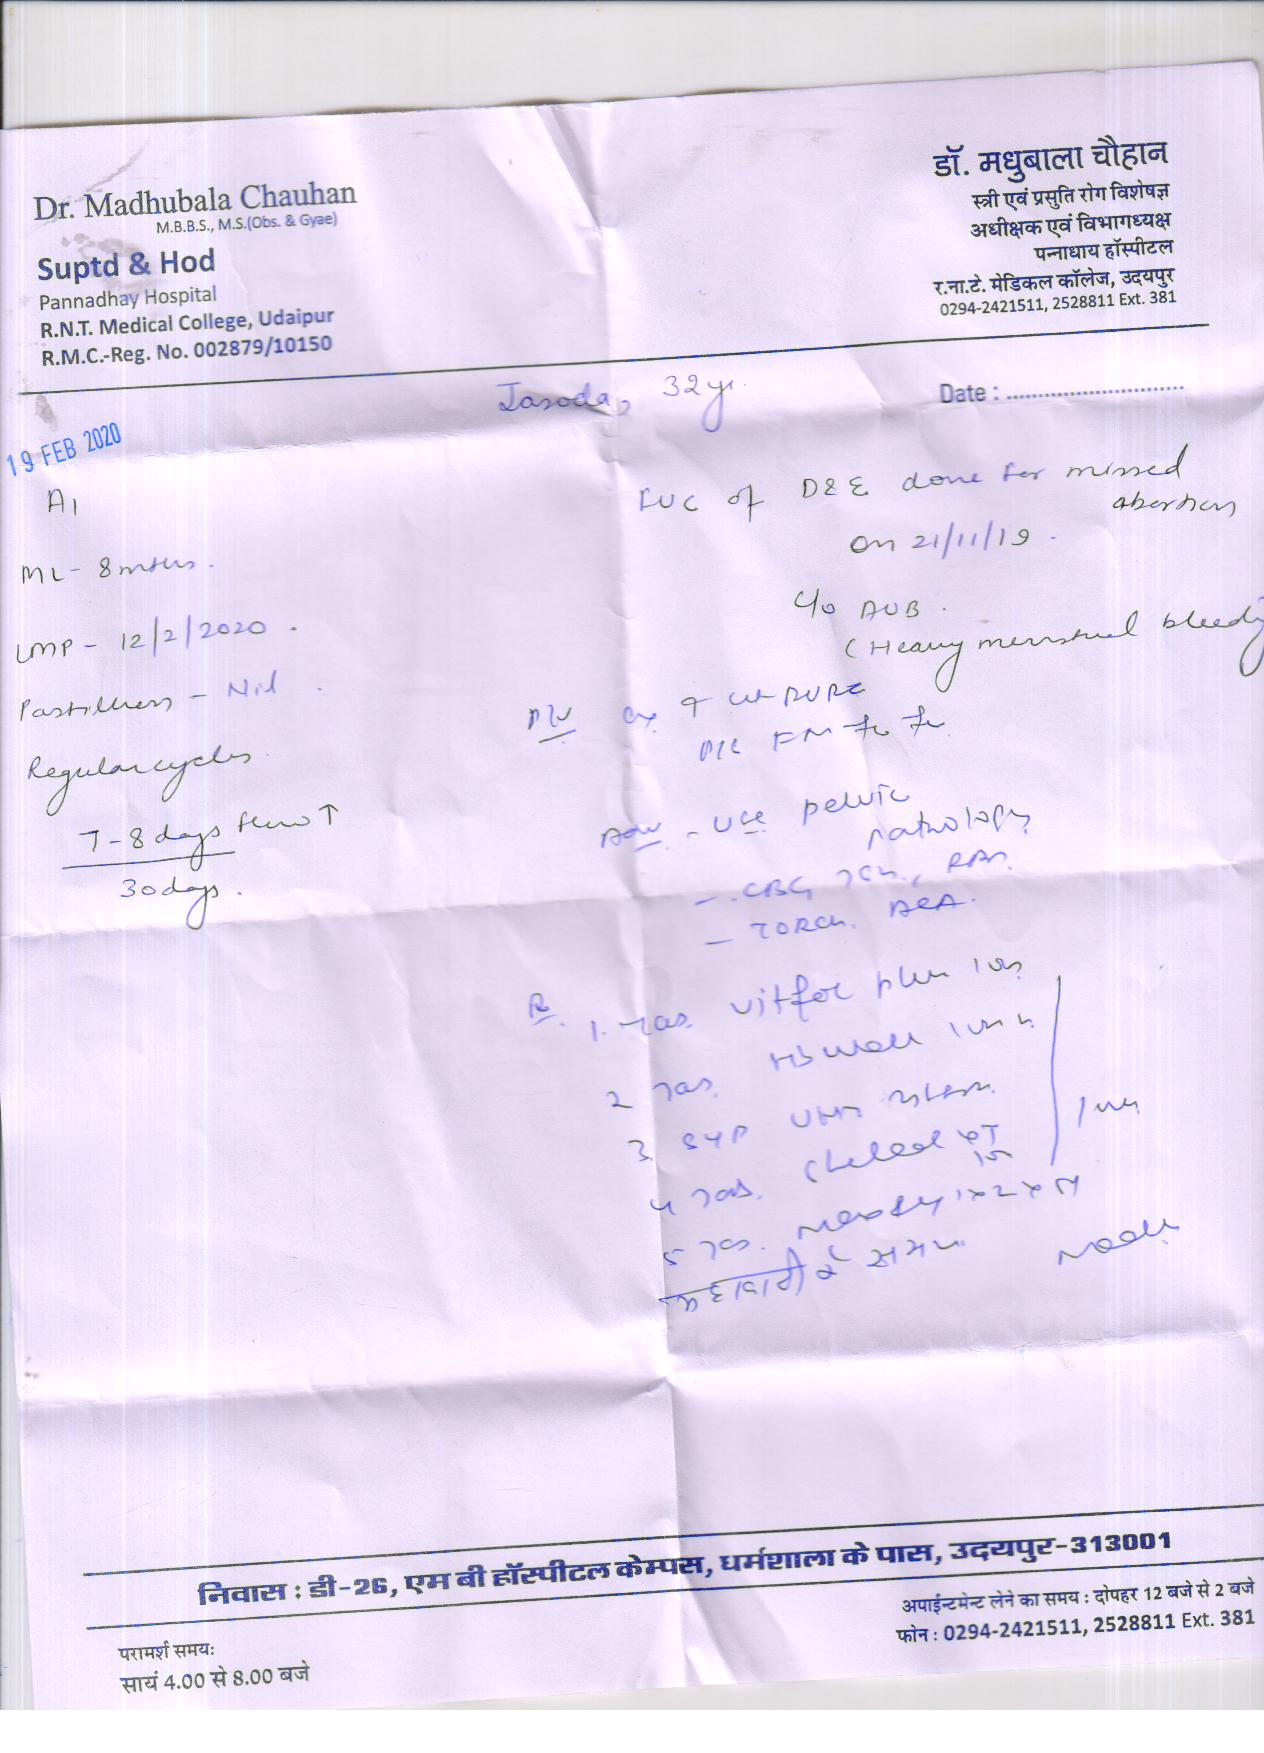 Dr. Madhubala Chauhan
M.B.B.S., M.S.(Obs. & Gyae)
Suptd & Hod
Pannadhay Hospital
R.N.T. Medical College, Udaipur
R.M.C.-Reg. No. 002879/10150
डॉ. मधुबाला चौहान
स्त्री एवं प्रसुति रोग विशेषज्ञ
अधीक्षक एवं विभागध्यक्ष
पन्नाधाय हॉस्पीटल
र.ना.टे. मेडिकल कॉलेज, उदयपुर
0294-2421511, 2528811 Ext. 381
Jasoda, 32 yr.
Date : ..............................
19 FEB 2020
A1
ML - 8 mths.
LMP - 12/2/2020.
Past illness - Nil.
Regular cycles
7-8 days flow ↑
30 days.
FUC of D&E done for missed
abortion
on 21/11/19.
c/o AUB.
(Heavy menstrual bleeding
P/V
Adv - USG pelvic
pathology
- CBC, TSH, RBS.
- TORCH. ACA.
R.
1. Tab. vitfol plus
2 Tab.
3. SYP
4 Tab.
5 Tab. 1x2x5d
माहवारी के समय
निवास : डी-26, एम बी हॉस्पीटल केम्पस, धर्मशाला के पास, उदयपुर-313001
परामर्श समय:
सायं 4.00 से 8.00 बजे
अपाईन्टमेन्ट लेने का समय : दोपहर 12 बजे से 2 बजे
फोन : 0294-2421511, 2528811 Ext. 381